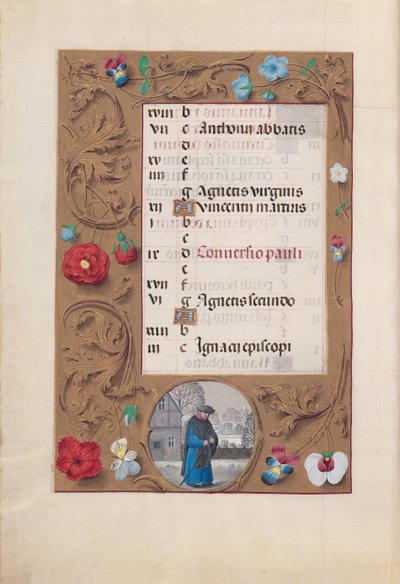 xviii b
vii c Anthonii abbatis
d
xv e
iiii f
g Agnetis virginis
xii A Vincentii martiris
i b
c
ix d Conuersio pauli
e
xvii f
vi g Agnetis secundo
A
xiiii b
iii c Ignacii episcopi